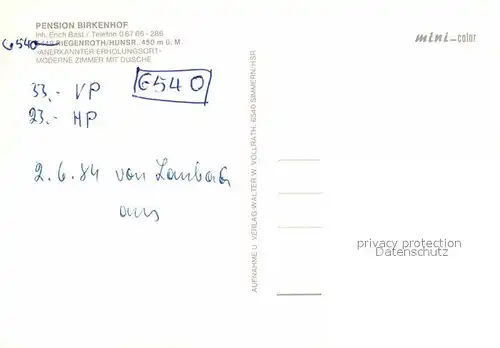 PENSION BIRKENHOF
Inh. Erich Bast / Telefon 0 67 66 - 286
6540 RIEGENROTH/HUNSR. 450 m ü. M.
-ANERKANNTER ERHOLUNGSORT-
MODERNE ZIMMER MIT DUSCHE
mini-color
33.- VP
6540
23.- HP
2.6.84 von Laubach
aus
AUFNAHME U. VERLAG WALTER W. VOLLRATH. 6540 SIMMERN/HSR
privacy protection
Datenschutz